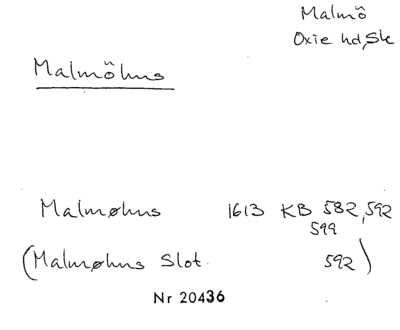 Malmö
Oxie hd, Sk
Malmöhus
Malmøhus 1613 KB 582, 592
599
(Malmøhus Slot 592)
Nr 20436